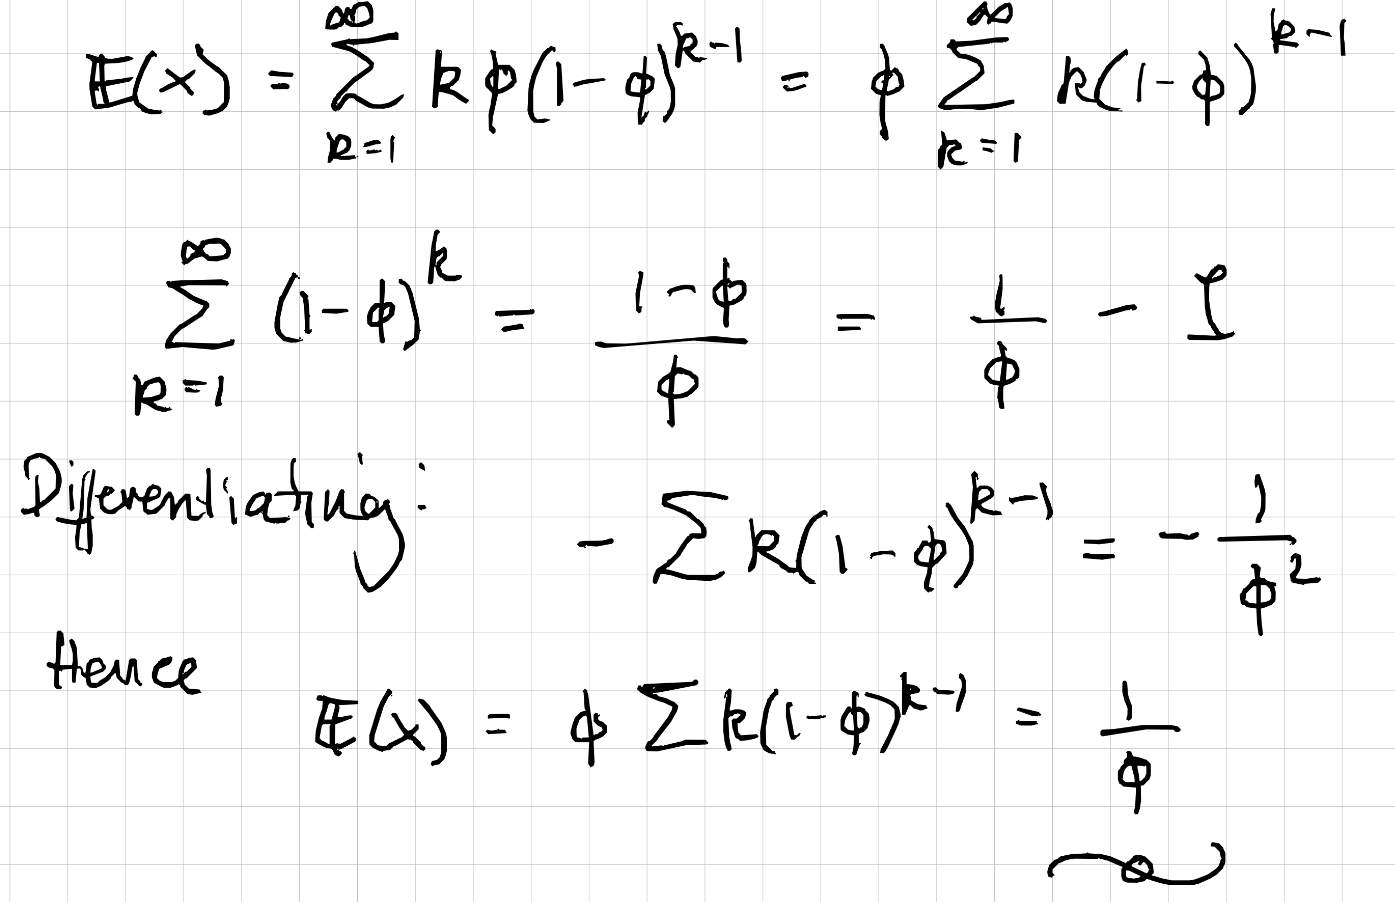 E(x) = ∑_{k=1}^{∞} k ϕ(1-ϕ)^{k-1} = ϕ ∑_{k=1}^{∞} k(1-ϕ)^{k-1}
∑_{k=1}^{∞} (1-ϕ)^k = \frac{1-ϕ}{ϕ} = \frac{1}{ϕ} - 1
Differentiating: - ∑ k(1-ϕ)^{k-1} = - \frac{1}{ϕ^2}
Hence
E(x) = ϕ ∑ k(1-ϕ)^{k-1} = \frac{1}{ϕ}